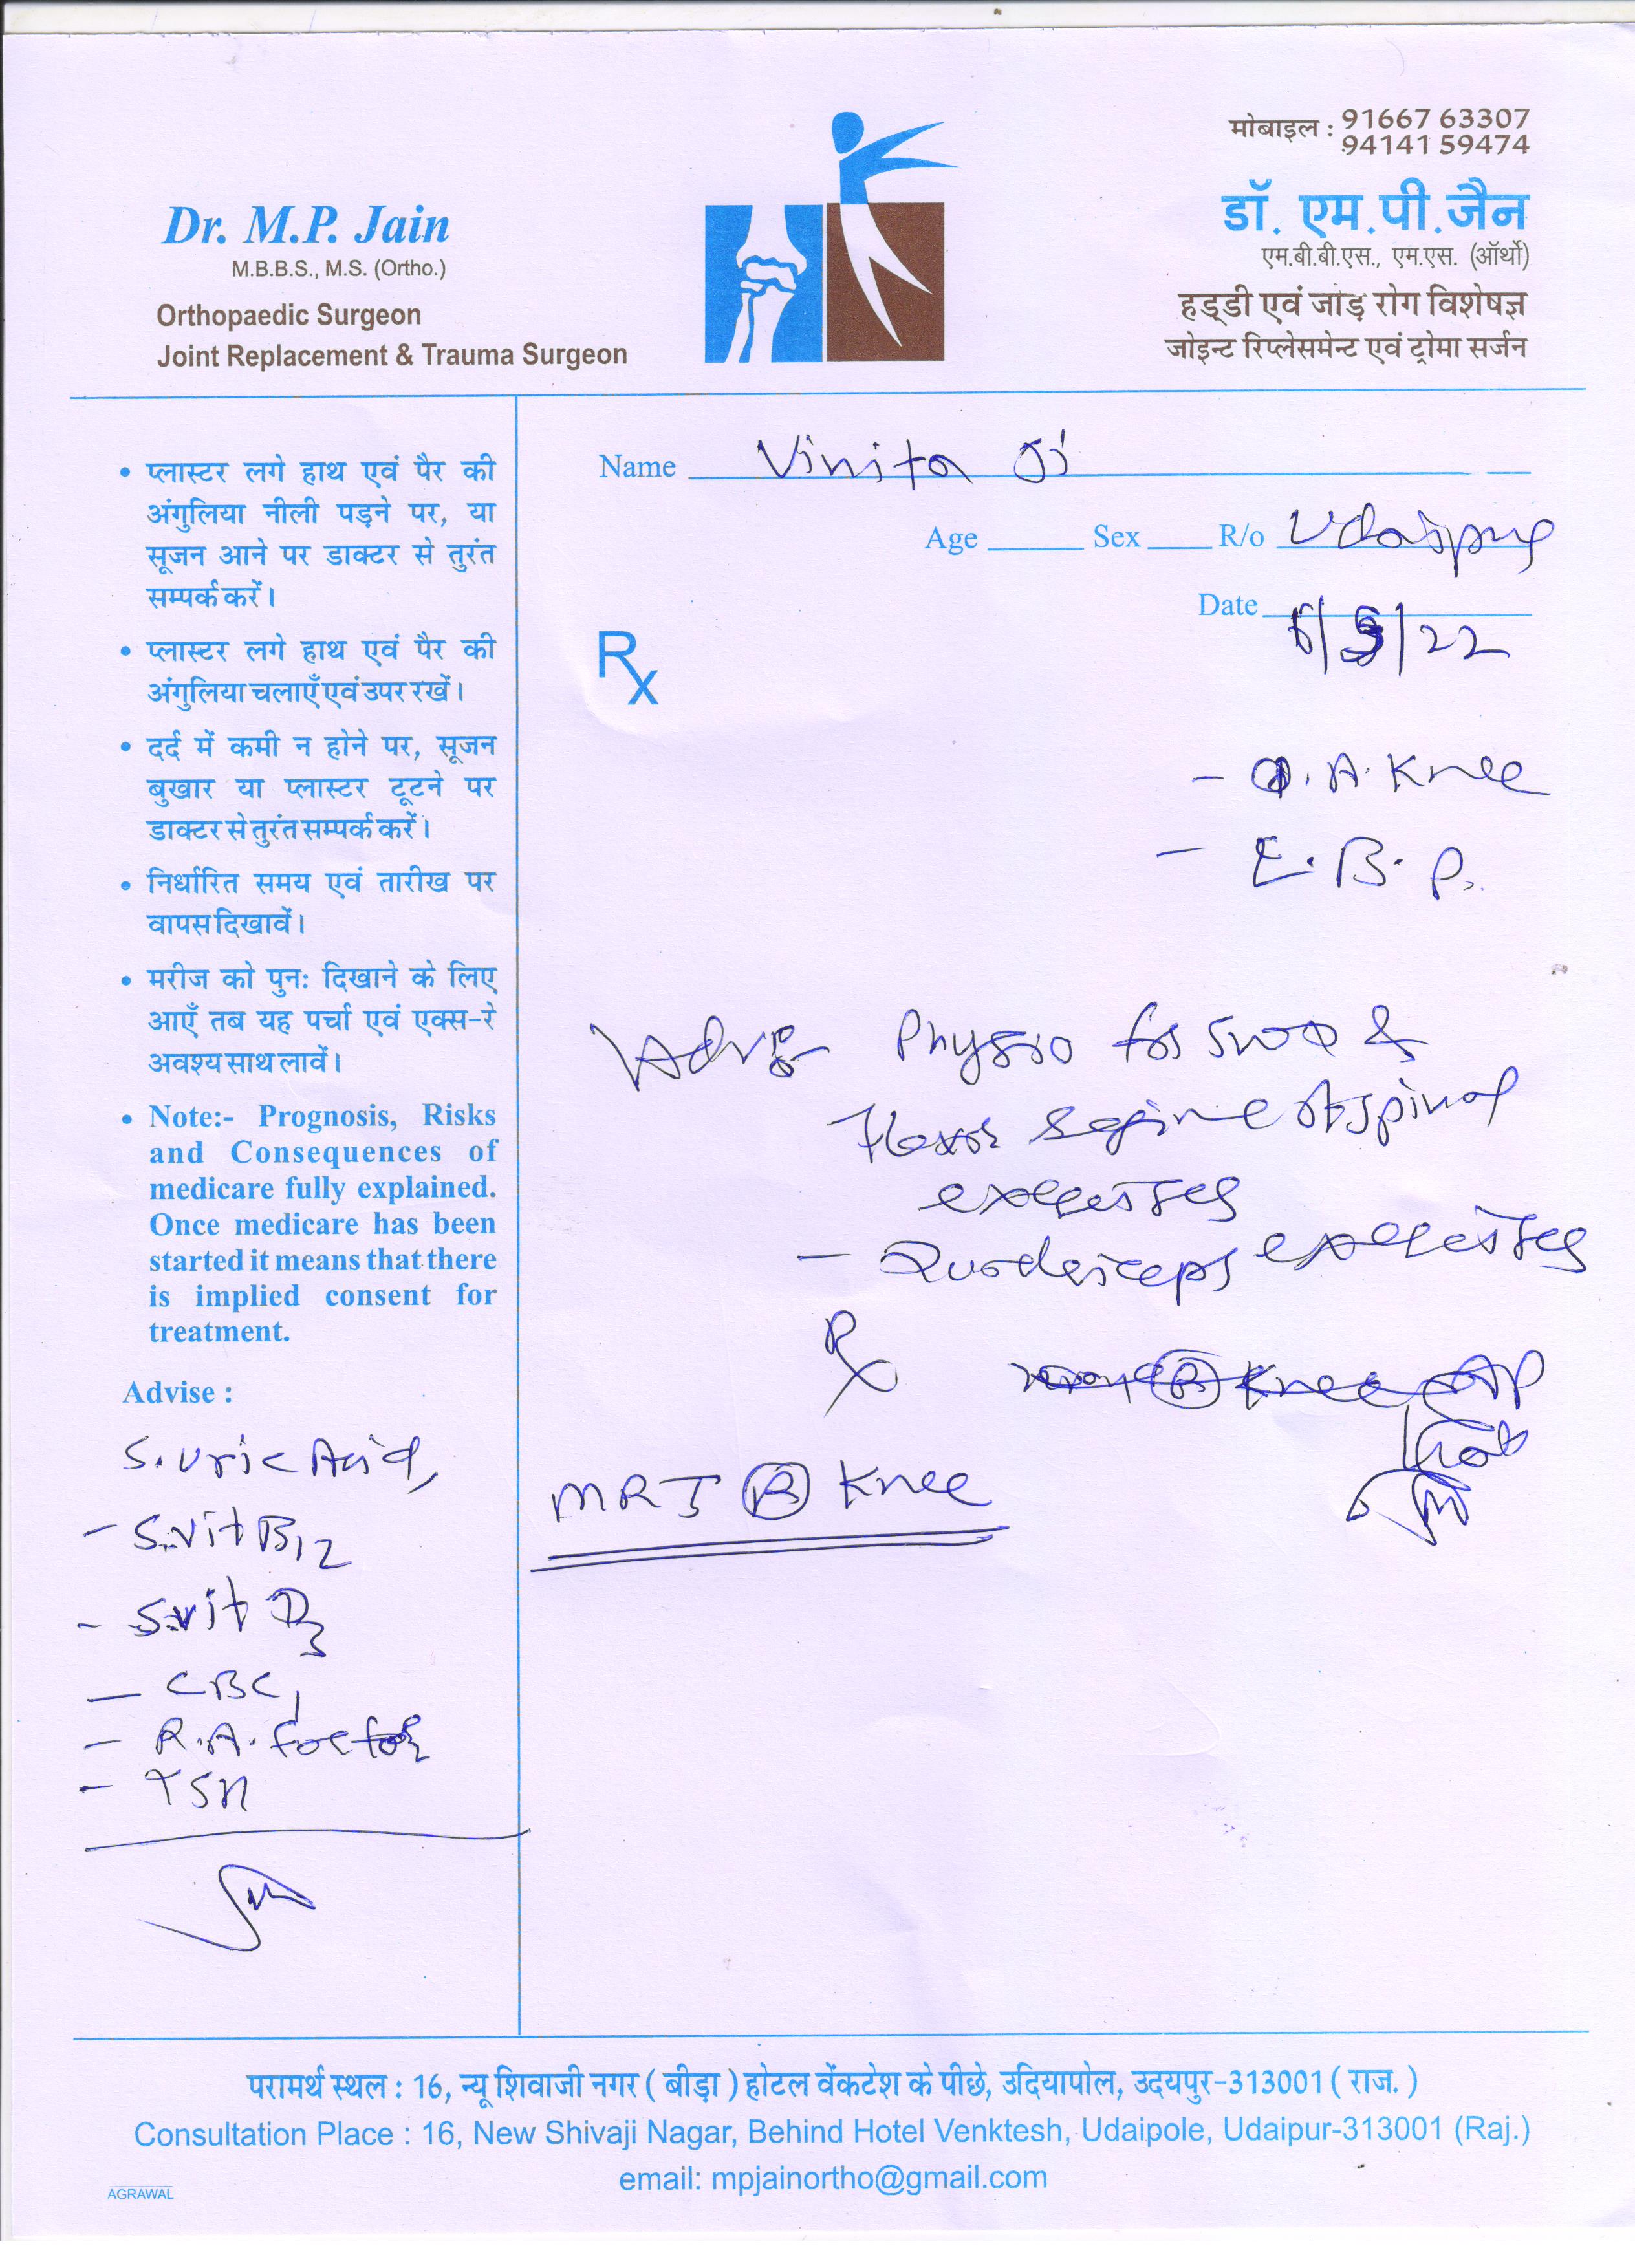 मोबाइल : 91667 63307
94141 59474
Dr. M.P. Jain
M.B.B.S., M.S. (Ortho.)
Orthopaedic Surgeon
Joint Replacement & Trauma Surgeon
डॉ. एम.पी.जैन
एम.बी.बी.एस., एम.एस. (ऑर्थो)
हड्डी एवं जोड़ रोग विशेषज्ञ
जोइन्ट रिप्लेसमेन्ट एवं ट्रोमा सर्जन
• प्लास्टर लगे हाथ एवं पैर की
अंगुलिया नीली पड़ने पर, या
सूजन आने पर डाक्टर से तुरंत
सम्पर्क करें।
• प्लास्टर लगे हाथ एवं पैर की
अंगुलिया चलाएँ एवं उपर रखें।
• दर्द में कमी न होने पर, सूजन
बुखार या प्लास्टर टूटने पर
डाक्टर से तुरंत सम्पर्क करें।
• निर्धारित समय एवं तारीख पर
वापस दिखावें।
• मरीज को पुनः दिखाने के लिए
आएँ तब यह पर्चा एवं एक्स-रे
अवश्य साथ लावें।
• Note:- Prognosis, Risks
and Consequences of
medicare fully explained.
Once medicare has been
started it means that there
is implied consent for
treatment.
Advise :
S. Uric Acid,
- S.Vit B12
- S.Vit D3
- CBC,
- R.A. factor
- TSH
Name Vinita
Age Sex R/o Udaipur
Date /22
Rx
- O.A. Knee
- B.P.
Adv Physio for SWD &
Flexor regime of spinal
exercises
- Quadriceps exercises
Rx
(R) Knee AP
MRI (R) Knee
परामर्थ स्थल : 16, न्यू शिवाजी नगर ( बीड़ा ) होटल वेंकटेश के पीछे, उदियापोल, उदयपुर-313001 ( राज. )
Consultation Place : 16, New Shivaji Nagar, Behind Hotel Venktesh, Udaipole, Udaipur-313001 (Raj.)
email: mpjainortho@gmail.com
AGRAWAL